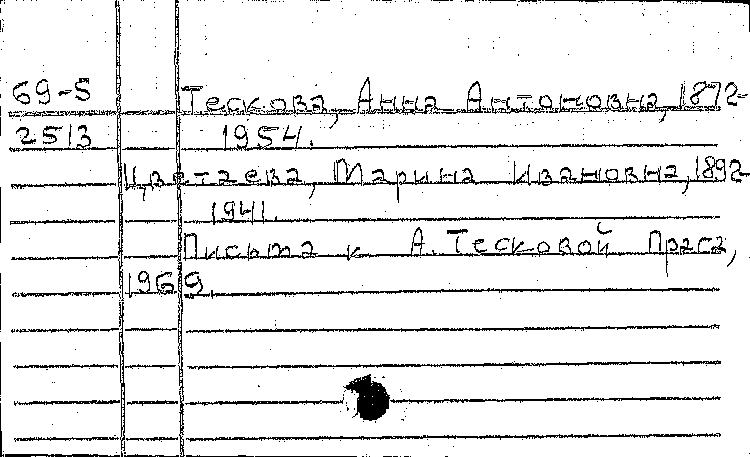 69-5 Тескова, Анна Антоновна, 1872-
2513 1954.
Цветаева, Марина Ивановна, 1892-
1941.
Письма к А. Тесковой Прага,
1969.